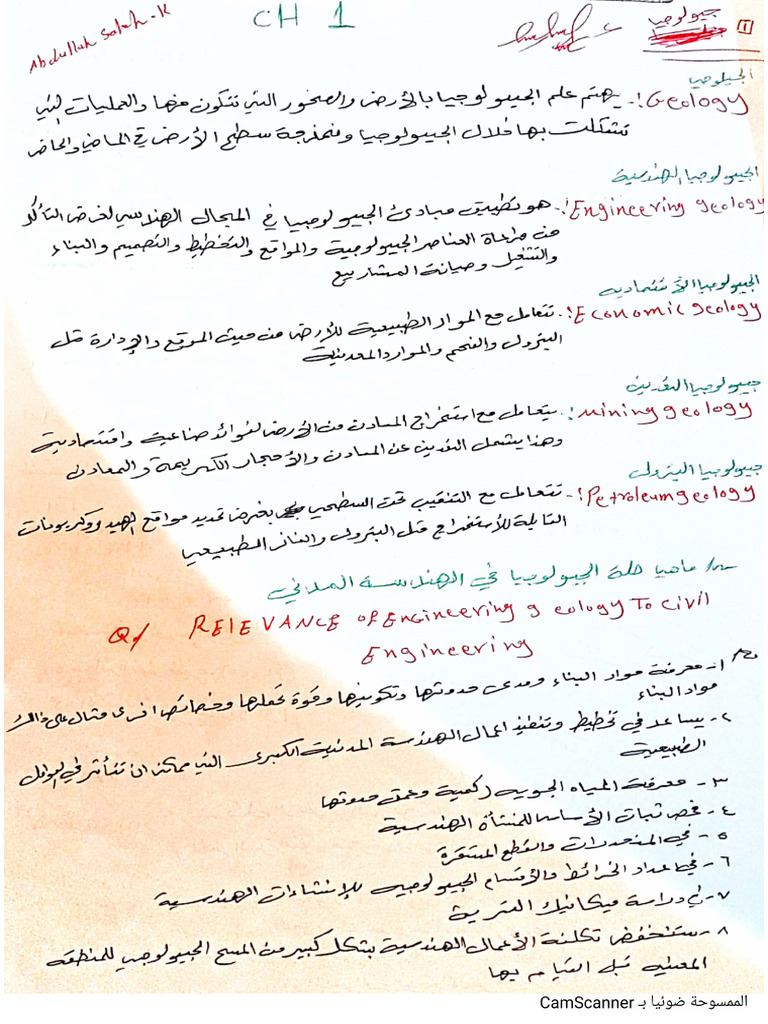 CH 1
Abdullah Salah-K
جيولوجيا
١
الجيولوجيا
Geology:- يهتم علم الجيولوجيا بالأرض والصخور التي تتكون منها والعمليات التي
تشكلت بها خلال الجيولوجيا ونمذجة سطح الأرض في الماضي والحاضر
الجيولوجيا الهندسية
Engineering geology:- هو تطبيق مبادئ الجيولوجيا في المجال الهندسي لغرض التأكد
من مراعاة العناصر الجيولوجية والمواقع والتخطيط والتصميم والبناء
والتشغيل وصيانة المشاريع
الجيولوجيا الاقتصادية
Economic geology:- تتعامل مع المواد الطبيعية للأرض من حيث الموقع والإدارة مثل
البترول والفحم والموارد المعدنية
جيولوجيا التعدين
Mining geology:- يتعامل مع استخراج المعادن من الأرض لفوائد صناعية واقتصادية
وهذا يشمل التعدين عن المعادن والأحجار الكريمة والمعادن
جيولوجيا البترول
Petroleum geology:- تتعامل مع التنقيب تحت السطحي بغرض تحديد مواقع الهيدروكربونات
القابلة للاستخراج مثل البترول والغاز الطبيعي
س/ ماهيا صلة الجيولوجيا في الهندسة المدني
Q/ RELEVANCE OF Engineering geology To civil
Engineering
ج/ ١- معرفة مواد البناء ومدى حدوثها وتكوينها وقوة تحملها وخصائص اخرى مثال على ذالك
مواد البناء
٢- يساعد في تخطيط وتنفيذ اعمال الهندسة المدنية الكبرى التي ممكن ان تتأثر في العوامل
الطبيعية
٣- معرفة المياه الجوفيه (كمية وعمق حدوثها
٤- فحص ثبات الأساس للمنشأة الهندسية
٥- في المنحدرات والقطع المستقرة
٦- في اعداد الخرائط والأقسام الجيولوجيه للإنشاءات الهندسية
٧- في دراسة ميكانيك التربة
٨- ستنخفض تكلفة الأعمال الهندسية بشكل كبير من المسح الجيولوجي للمنطقه
المعنيه قبل القيام بها
الممسوحة ضوئيا بـ CamScanner